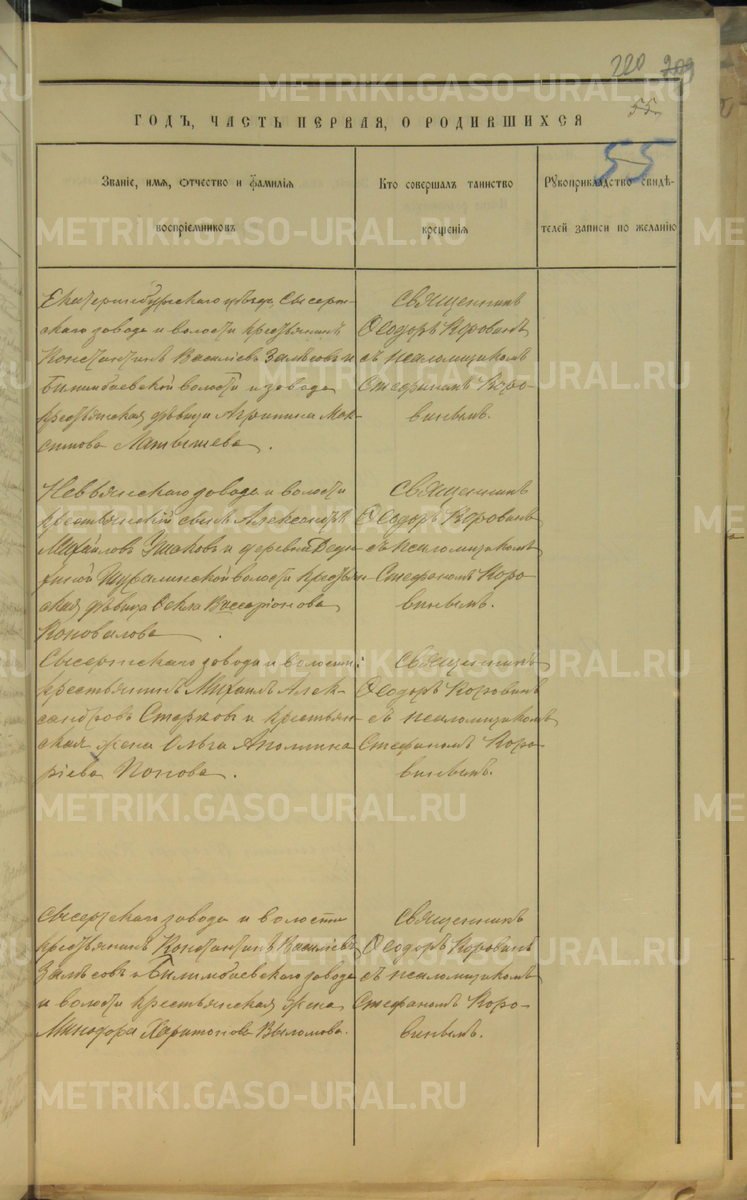 220 209
55
ГОДЪ, ЧАСТЬ ПЕРВАЯ, О РОДИВШИХСЯ
55
Званіе, имя, отчество и фамилія
воспріемниковъ
Кто совершалъ таинство
крещенія
Рукоприкладство свидѣ-
телей записи по желанію
Екатеринбургскаго уѣзда, Сысерт-
скаго завода и волости крестьянинъ
Константинъ Василіевъ Залѣсовъ и
Билимбаевской волости и завода
крестьянская дѣвица Агрипина Мак-
симова Латышева.
Священникъ
Ѳеодоръ Коровинъ
съ псаломщикомъ
Стефаномъ Коро-
винымъ.
Невьянскаго завода и волости
крестьянскій сынъ Александръ
Михайловъ Ушаковъ и деревни
Шуралинской волости крестьян-
ская дѣвица Ѳекла Виссаріонова
Коновалова.
Священникъ
Ѳеодоръ Коровинъ
съ псаломщикомъ
Стефаномъ Коро-
винымъ.
Сысертскаго завода и волости:
крестьянинъ Михаилъ Алек-
сандровъ Старковъ и крестьян-
ская жена Ольга Аполлина-
ріева Попова.
Священникъ
Ѳеодоръ Коровинъ
съ псаломщикомъ
Стефаномъ Коро-
винымъ.
Сысертскаго завода и волости
крестьянинъ Константинъ Василіевъ
Залѣсовъ и Билимбаевскаго завода
и волости крестьянская жена
Минодора Харитонова
Священникъ
Ѳеодоръ Коровинъ
съ псаломщикомъ
Стефаномъ Коро-
винымъ.
METRIKI.GASO-URAL.RU